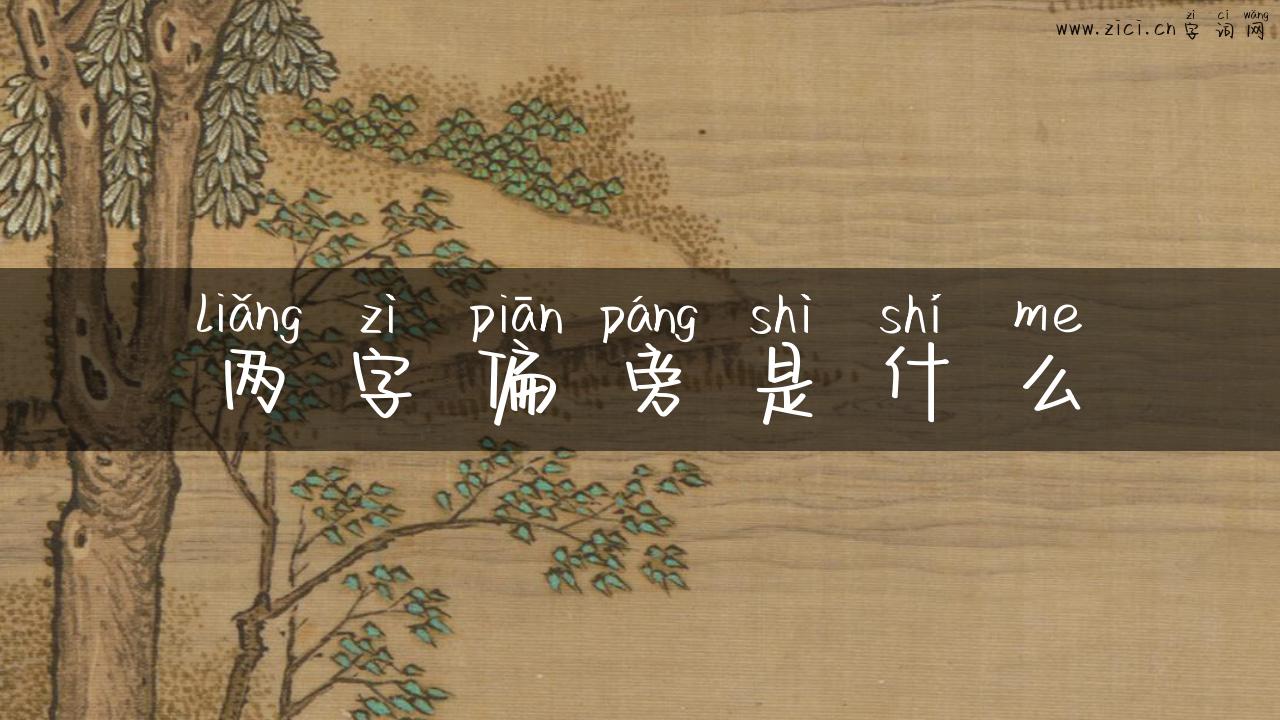 zì cí wǎng
www.zici.cn字词网
liǎng zì piān páng shì shí me
两字偏旁是什么